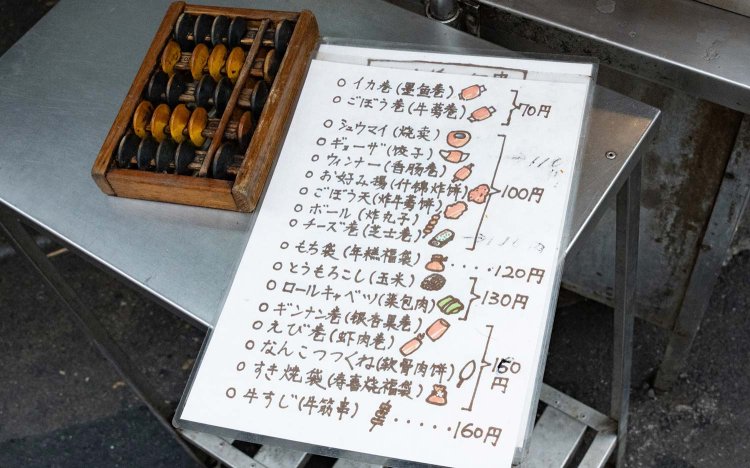 ○ イカ巻(墨魚巻)
○ ごぼう巻(牛蒡巻) 70円
○ シュウマイ(焼売)
○ ギョーザ(饺子)
○ ウィンナー(香肠巻)
○ お好み揚(什锦炸饼) 100円
○ ごぼう天(炸牛蒡饼)
○ ボール(炸丸子)
○ チーズ巻(芝士巻)
○ もち袋(年糕福袋) ・・・・・120円
○ とうもろこし(玉米)
○ ロールキャベツ(菜包肉) 130円
○ ギンナン巻(银杏果巻)
○ えび巻(虾肉巻)
○ なんこつつくね(軟骨肉饼) 150円
○ すき焼袋(寿喜烧福袋)
○ 牛すじ(牛筋串) ・・・・・・160円